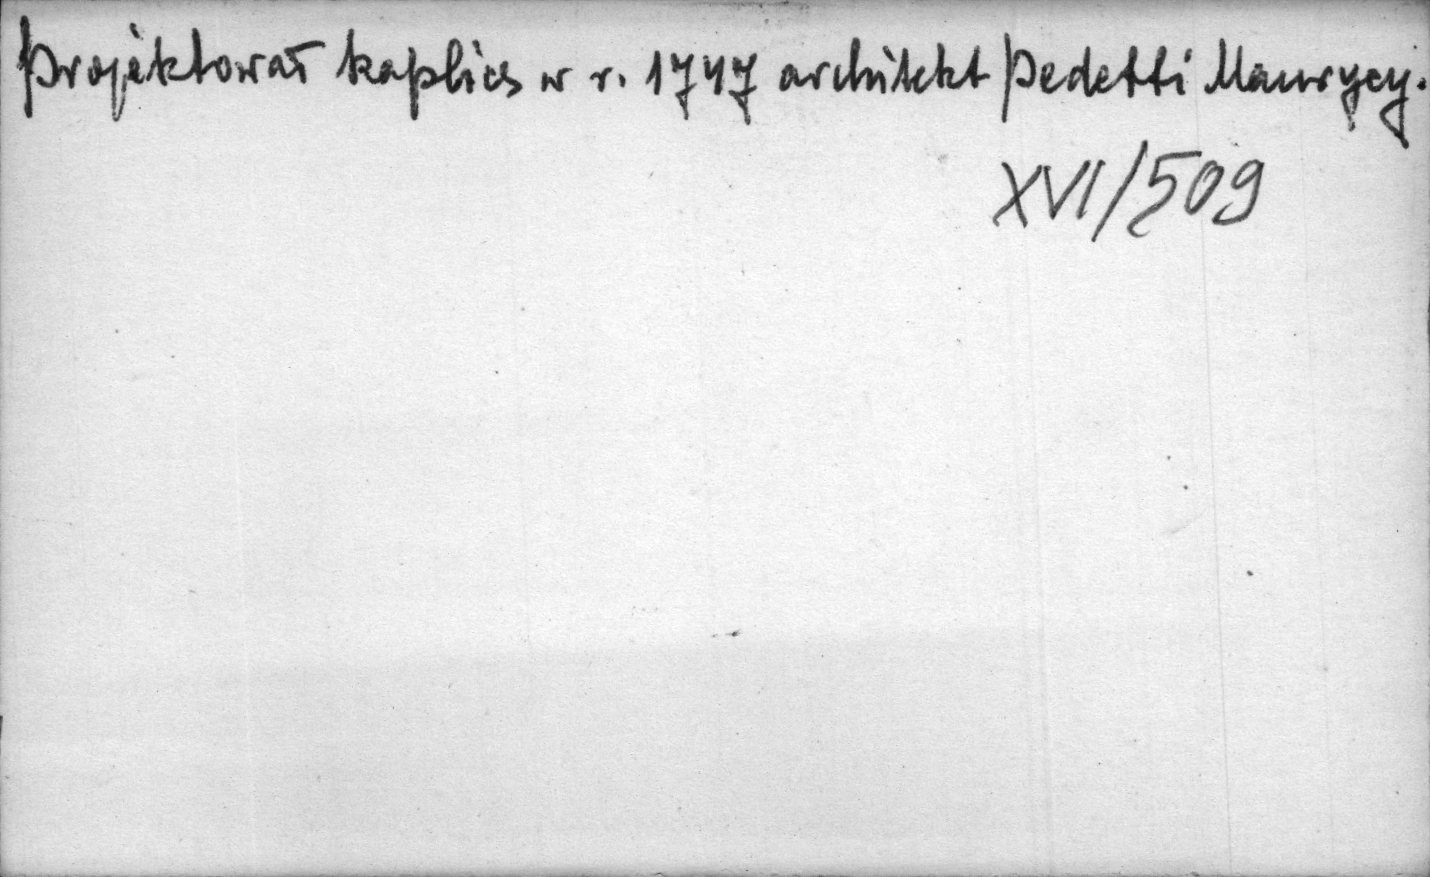 Projektował kaplicę w r. 1747 architekt Pedetti Maurycy.
XVI/509